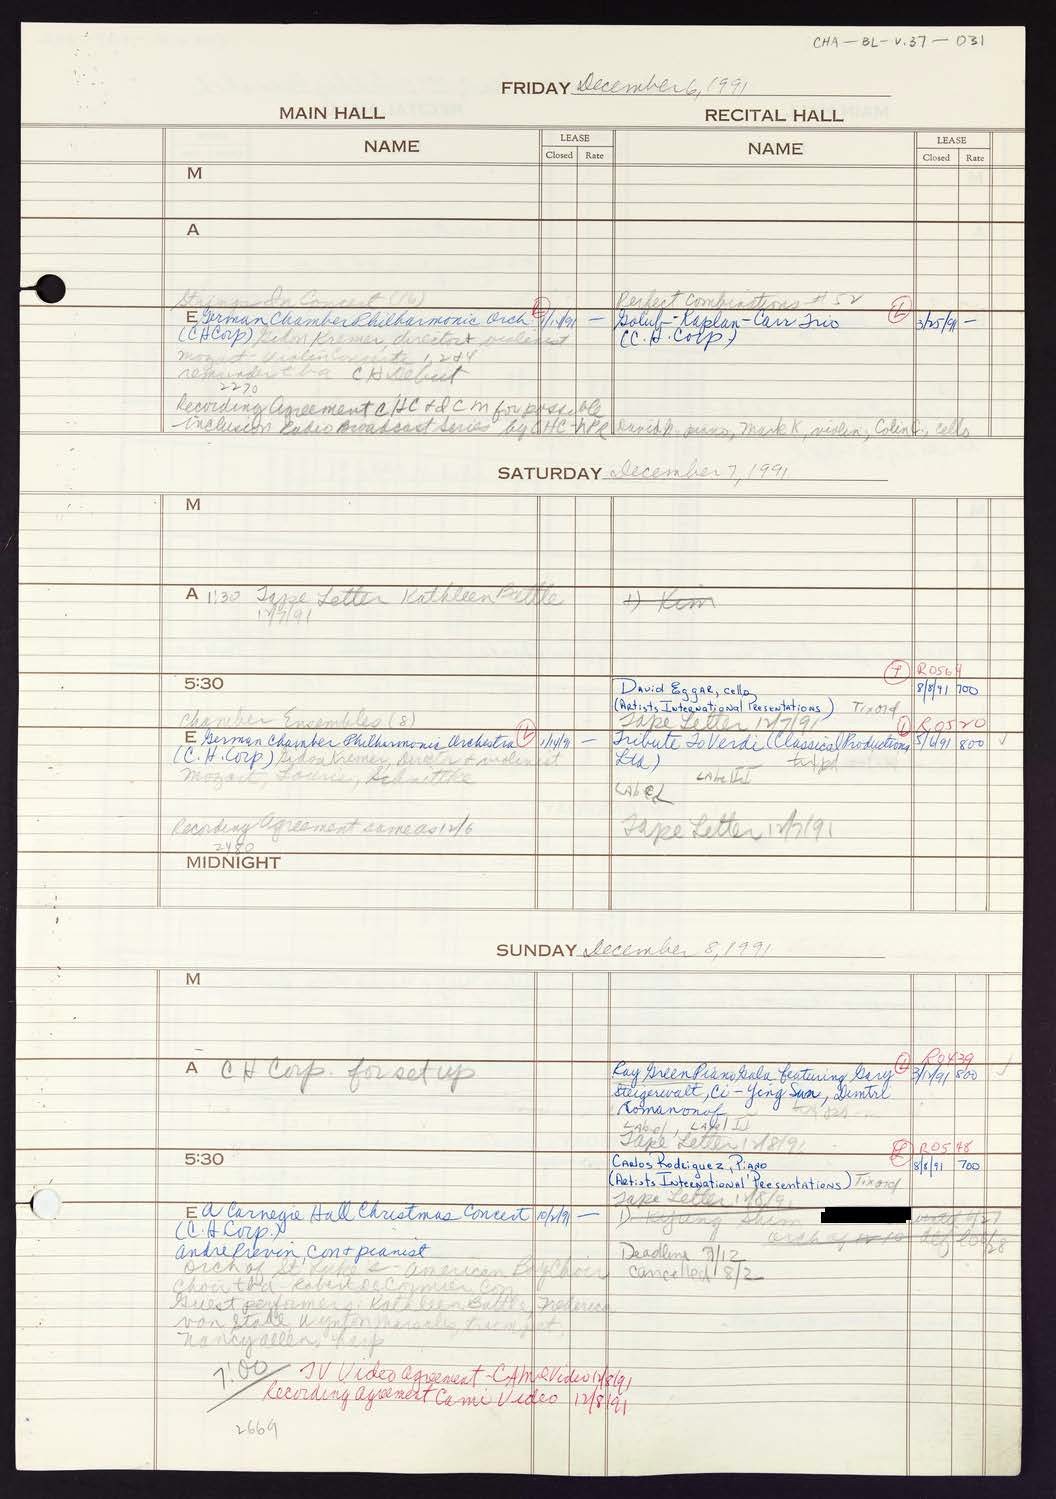 CHA-BL-V.37-031
FRIDAY December 6, 1991
MAIN HALL
RECITAL HALL
NAME
LEASE
Closed Rate
NAME
LEASE
Closed Rate
M
A
Strings In Concert (16)
E German Chamber Philharmonic Orch 1/14/91 —
(CHCorp) Gidon Kremer, director & violinist
Mozart - Violin Concerti 1, 2 + 4
remainder tba CH Debut
2270
Recording Agreement c/HC + for possible
inclusion Radio Broadcast Series by CHC-NPR
Perfect Combinations # 52
Golub-Kaplan-Carr Trio 3/25/91 —
(C.H.Corp.)
David G. piano, Mark K, violin, Colin C, cello
SATURDAY December 7, 1991
M
A 1:30 Tape Letter Kathleen Battle
12/7/91
1) Kim
5:30
R0564
David Eggar, cello 8/8/91 700
(Artists International Presentations) Tixord
Tape Letter 12/7/91
Chamber Ensembles (8)
E German Chamber Philharmonic Orchestra 1/14/91 —
(C.H.Corp) Gidon Kremer, Director + violinist
Mozart, Lourie, Schnittke
Recording Agreement same as 12/6
2480
R0520
Tribute To Verdi (Classical Productions 5/6/91 800
Ltd)
Label II
Label
Tape Letter 12/7/91
MIDNIGHT
SUNDAY December 8, 1991
M
A CH Corp. for set up
R0439
Ray Green Piano Gala featuring Gary 3/12/91 800
Steigerwalt, Ci-Ying Sun, Dimtri
Romanonof
Label, Label II
Tape Letter 12/8/91
5:30
R0548
Carlos Rodriguez, Piano 8/8/91 700
(Artists International Presentations) Tixord
Tape Letter 12/8/91
E A Carnegie Hall Christmas Concert 10/2/91 —
(C.H.Corp.)
Andre Previn, con + pianist
Orch of St Luke's - American Boychoir
Choir tba - Robert DeCormier, Con
Guest performers: Kathleen Battle, Frederica
von Stade, Wynton Marsalis, trumpet,
Nancy Allen, harp
7:00 TV Video Agreement - CAMI Video 12/8/91
Recording Agreement Cami Video 12/8/91
2669
1) Kijung Shim
Deadline 9/12
Cancelled 8/2